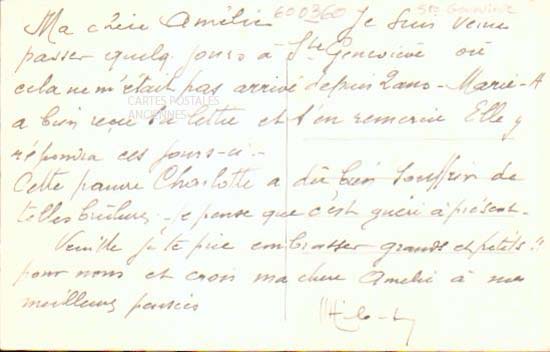 Ma chère Amélie 600360 Je suis venue Ste Geneviève
passer quelq. jours à Ste Geneviève où
cela ne m'était pas arrivé depuis 2 ans - Marie-A
CARTES POSTALES
ANCIENNES
a bien reçu ta lettre et t'en remercie Elle y
répondra ces jours-ci -
Cette pauvre Charlotte a dû bien souffrir de
telles brûlures - je pense que c'est guéri à présent -
Veuille je te prie embrasser grands et petits !!
pour nous et crois ma chère Amélie à mes
meilleures pensées